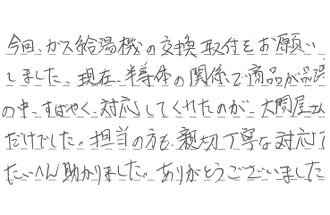 今回、ガス給湯機の交換取付をお願い
しました、現在、半導体の関係で商品が品薄
の中、すばやく、対応してくれたのが、大問屋さん
だけでした。担当の方も、親切丁寧な対応で
たいへん助かりました。ありがとうございました